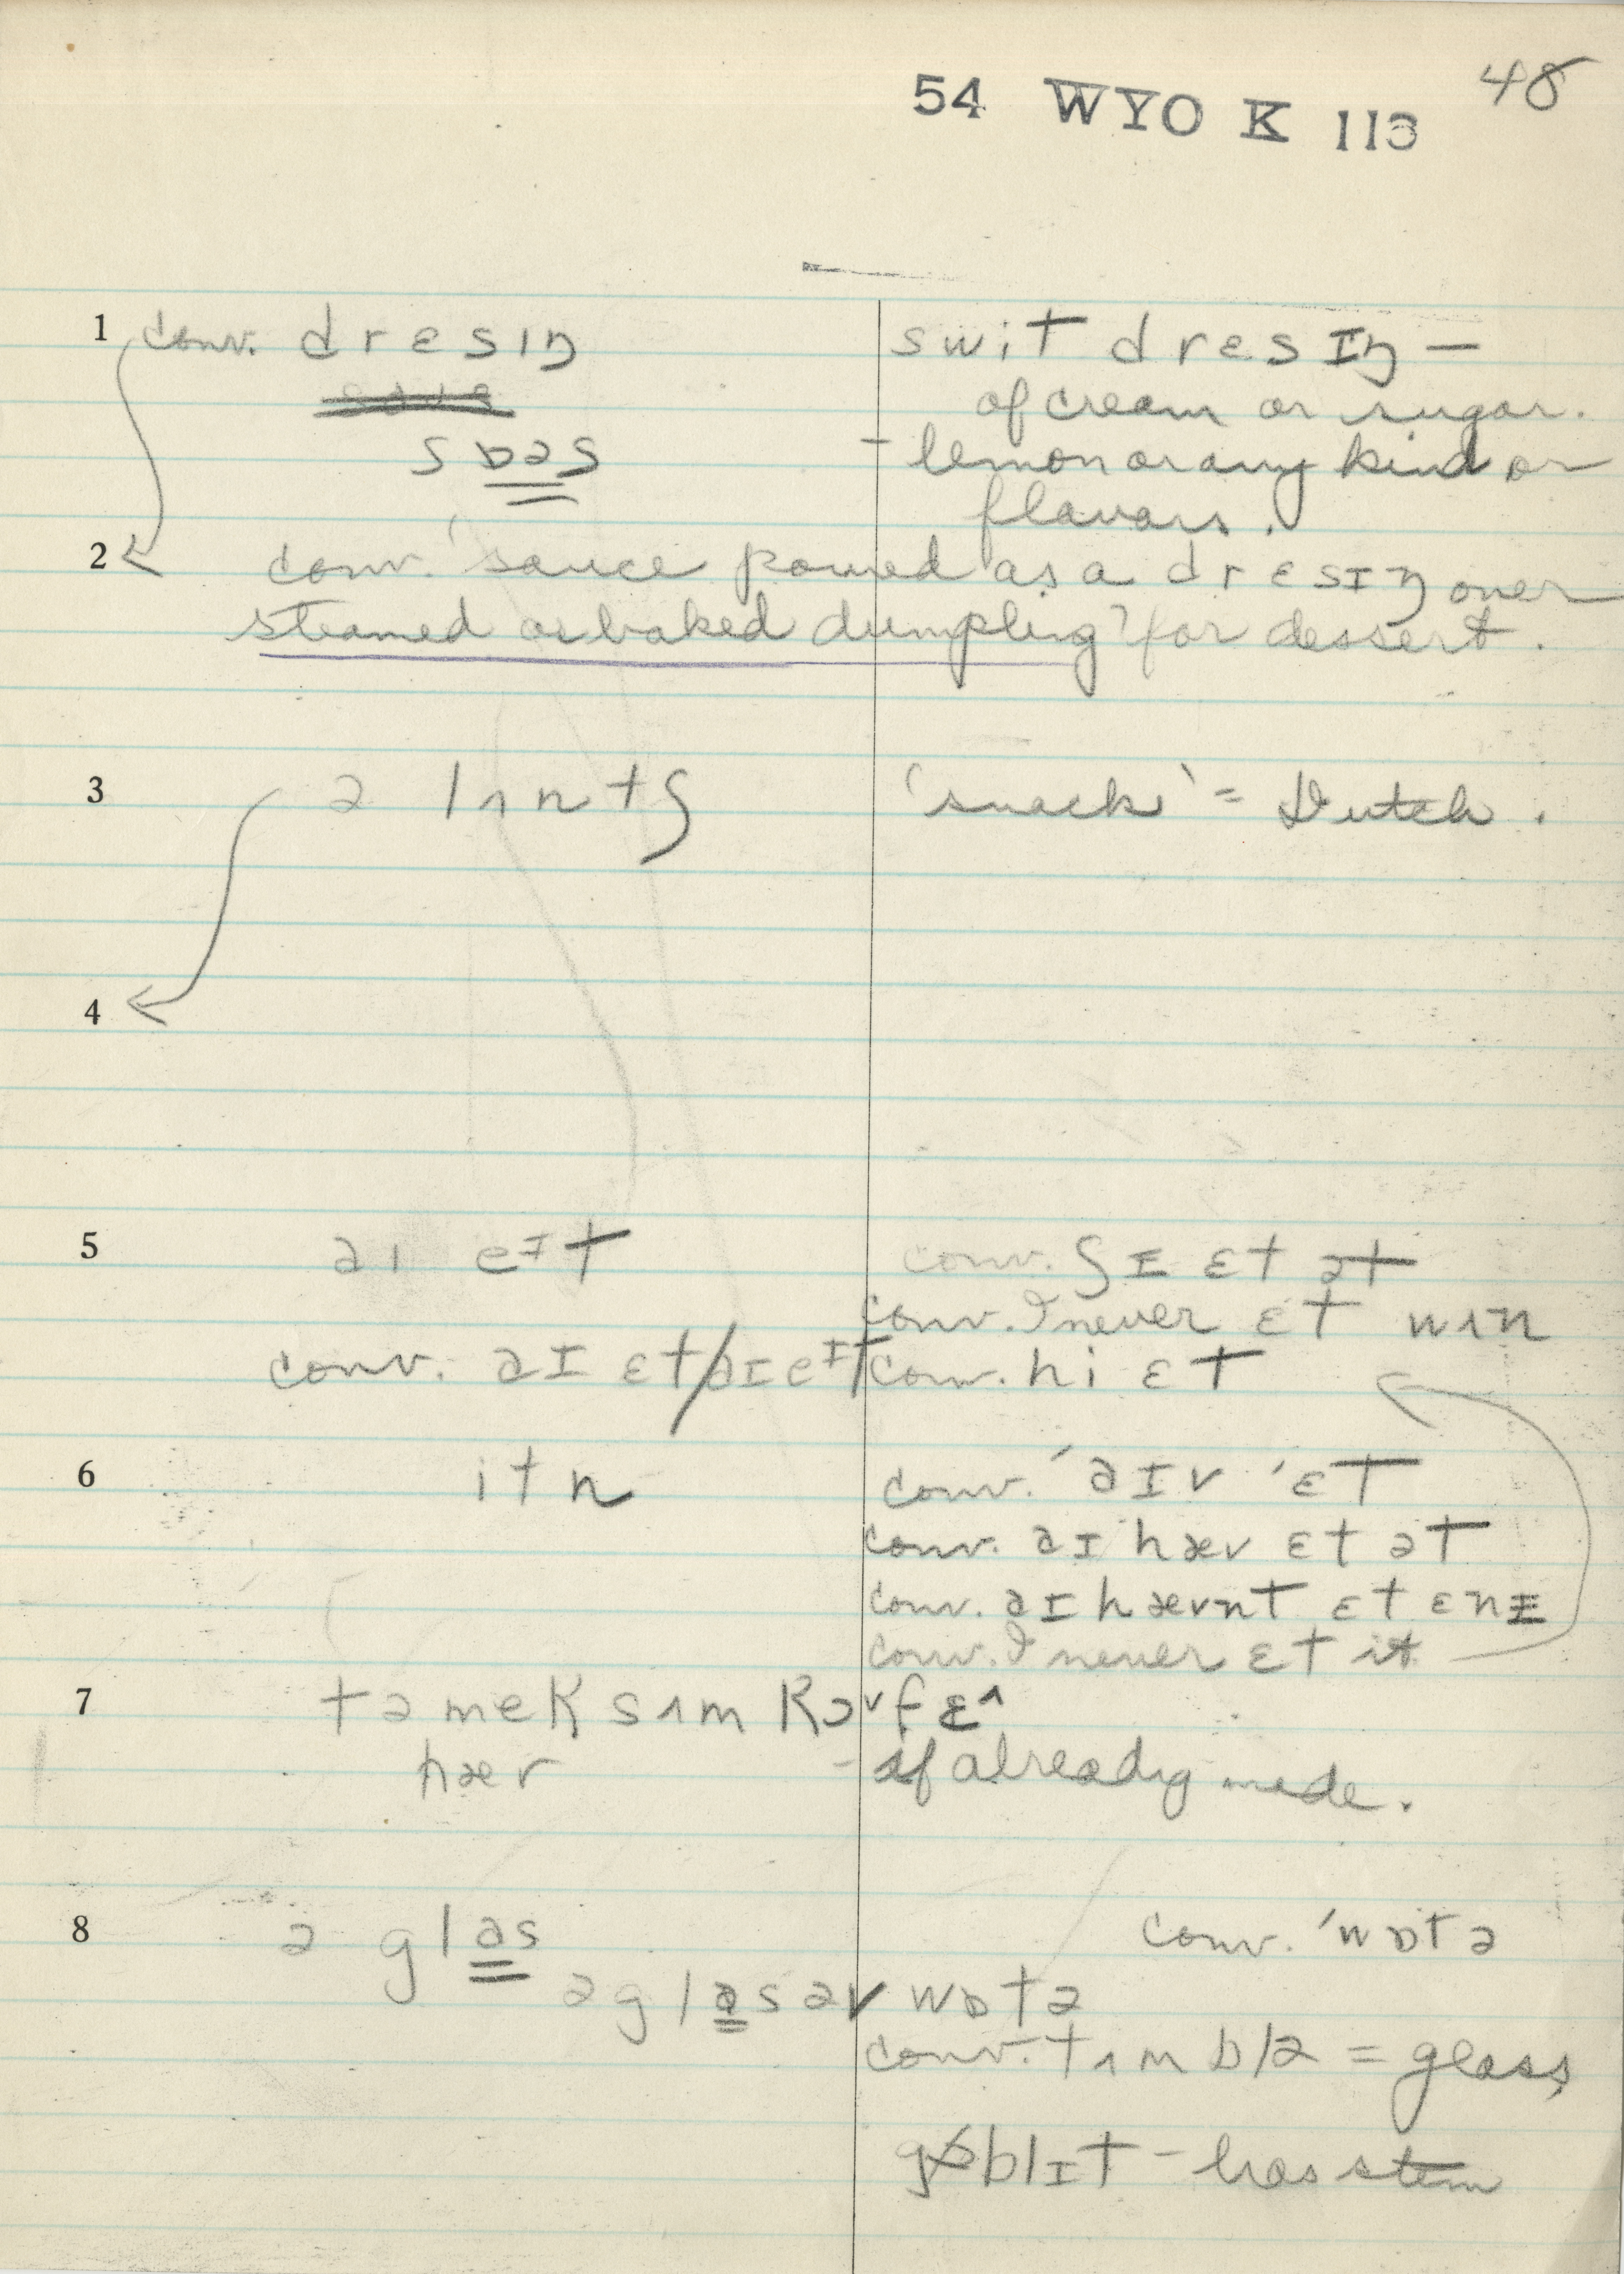 48
54 WYO K 113
1 conv. drɛsɪŋ
swit drɛsɪŋ —
of cream or sugar.
sɒəs
- lemon or any kind or
flavors.
2 conv. 'sauce poured as a drɛsɪŋ over
steamed or baked dumpling' for dessert.
3 ə lʌntʃ
'snack' = Dutch.
4
5 aɪ eᴵt
conv. ʃɪ ɛt ət
conv. I never ɛt nʌn
conv. aɪ ɛt/aɪ eᴵt
conv. hi ɛt
6 itn
conv. 'aɪv 'ɛt
conv. aɪ hæv ɛt ət
conv. aɪ hævnt ɛt ɛnɪ
conv. I never ɛt it
7 tə mek sʌm kɔᵛfɛ^
hæv - if already made.
8 ə glas
conv. 'wɒtə
ə glas əv wɒtə
conv. tʌmblə = glass
gɒblɪt - has stem